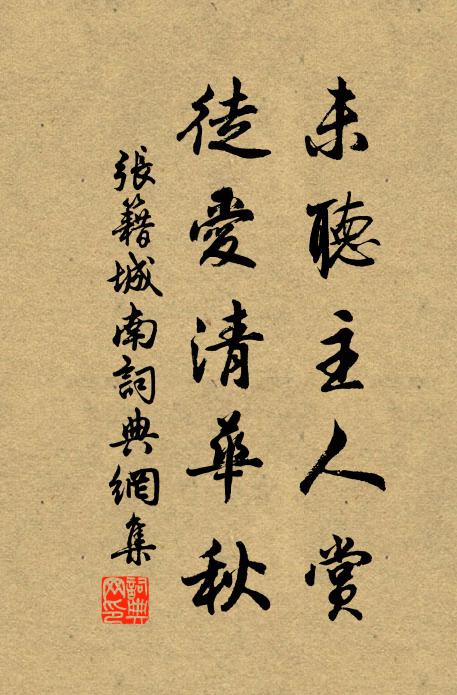 未聽主人賞
徒愛清華秋
張籍城南詞典網集
詞典網印